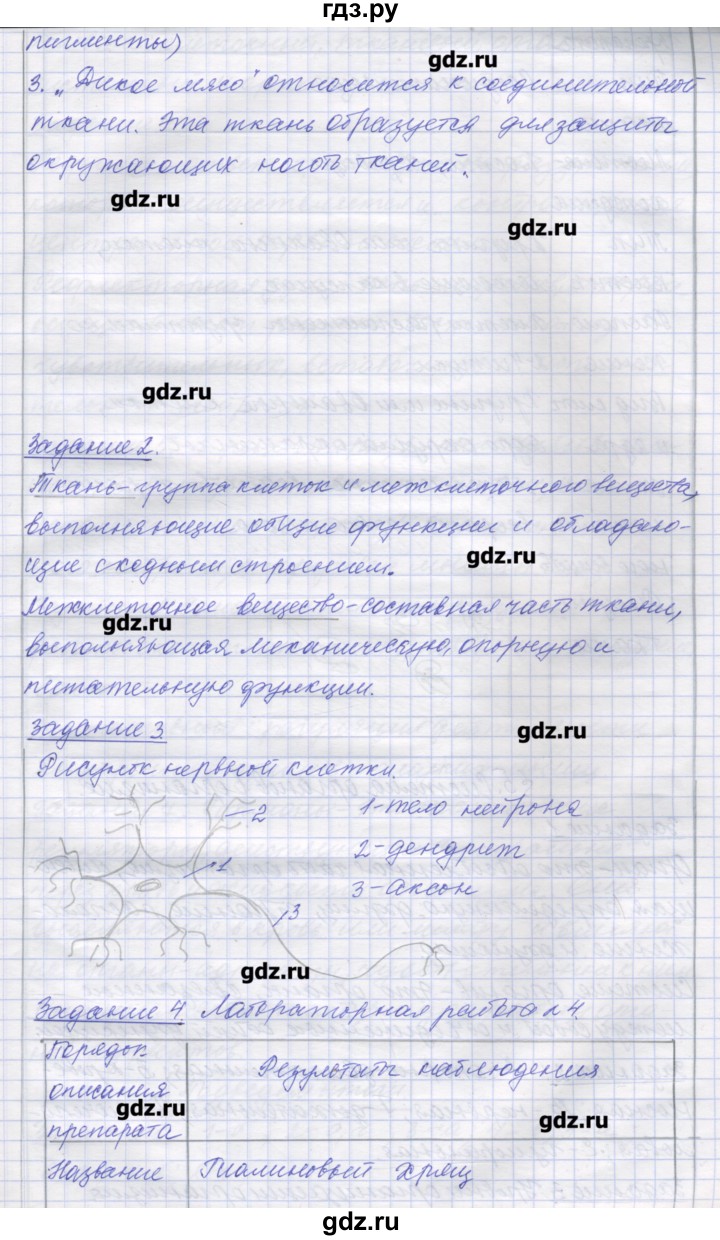 гдз.ру
пигменты)
gdz.ru
3. „Дикое мясо" относится к соединительной
ткани. Эта ткань образуется для защиты
окружающих ноготь тканей.
gdz.ru
gdz.ru
gdz.ru
Задание 2.
Ткань-группа клеток и межклеточного вещества,
выполняющие общие функции и обладаю-
щие сходным строением.
gdz.ru
Межклеточное вещество-составная часть ткани,
gdz.ru
выполняющая механическую, опорную и
питательную функции.
Задание 3.
gdz.ru
Рисунок нервной клетки.
2
1-тело нейрона
1
2-дендрит
3-аксон
3
gdz.ru
Задание 4 Лабораторная работа №4.
Порядок
описания
препарата
Результаты наблюдения
gdz.ru
gdz.ru
Название Гиалиновый хрящ
gdz.ru